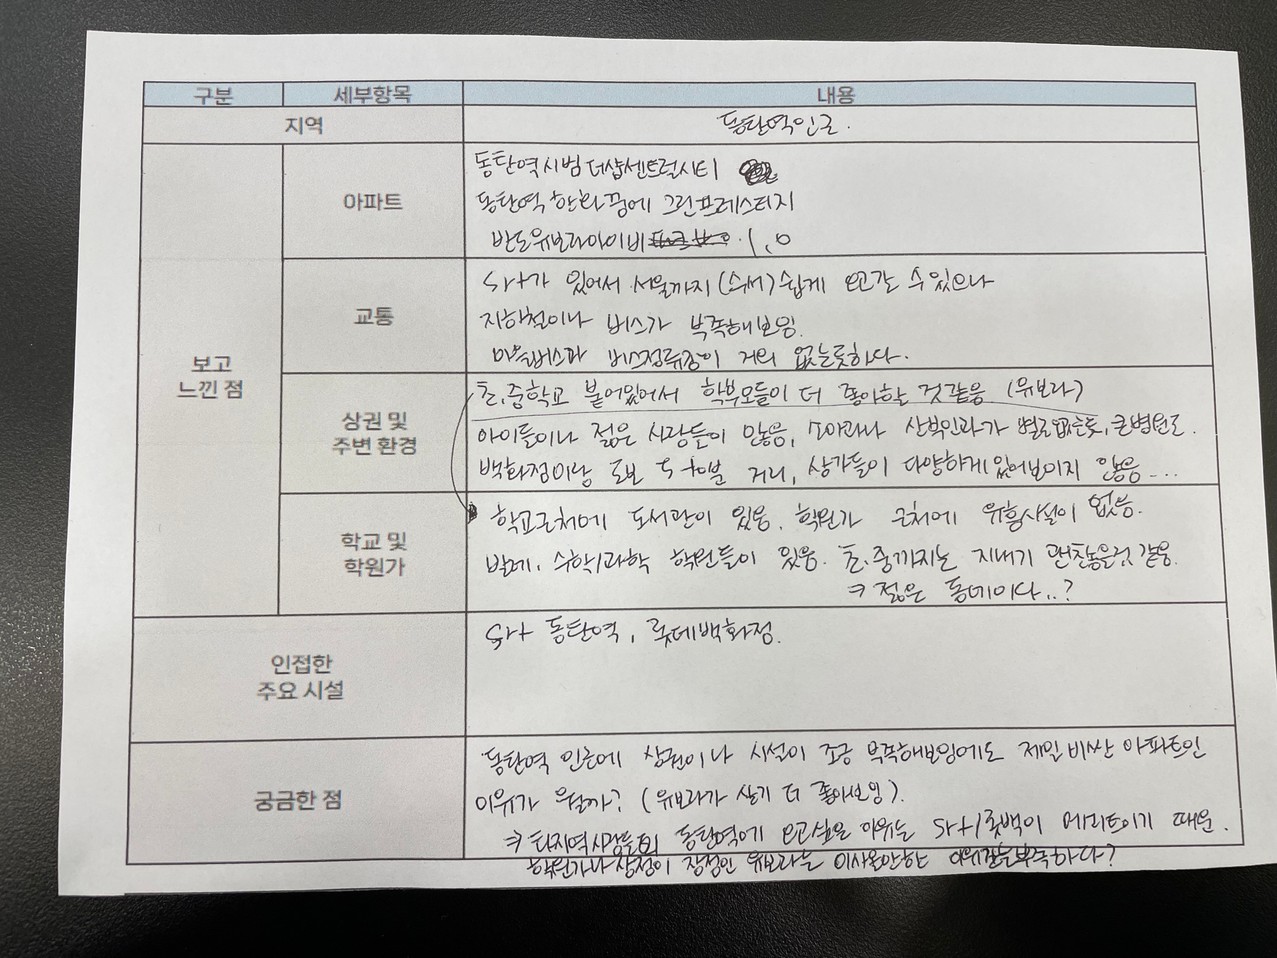 구분 세부항목 내용
지역 동탄역인근.
보고
느낀 점
아파트
동탄역시범더샵센트럴시티
동탄역 한화꿈에그린프레스티지
반도유보라아이비 1.0
교통
Srt가 있어서 서울까지(수서) 쉽게 오고갈 수 있으나
지하철이나 버스가 부족해보임.
마을버스과 버스정류장이 거의 없는듯하다.
상권 및
주변 환경
초.중학교 붙어있어서 학부모들이 더 좋아할 것같음 (유보라)
아이들이나 젊은 사람들이 많음, 소아과나 산부인과가 별로없는듯, 큰병원도.
백화점이랑 도보 5분 거리, 상가들이 다양하게있어보이지 않음...
학교 및
학원가
학교근처에 도서관이 있음. 학원가 근처에 유흥시설이 없음.
발레, 수학/과학 학원들이 있음. 초.중까지는 지내기 괜찮을것 같음.
젊은 동네이다..?
인접한
주요 시설
Srt 동탄역, 롯데백화점.
궁금한 점
동탄역 인근에 상권이나 시설이 조금 부족해보임에도 제일 비싼 아파트인
이유가 뭘까? (유보라가 살기 더 좋아보임).
타지역사람들이 동탄역에 오고싶은 이유는 Srt/롯백이 메리트이기 때문.
학원가나 상점이 장점인 유보라는 이사올만한 부족하다?